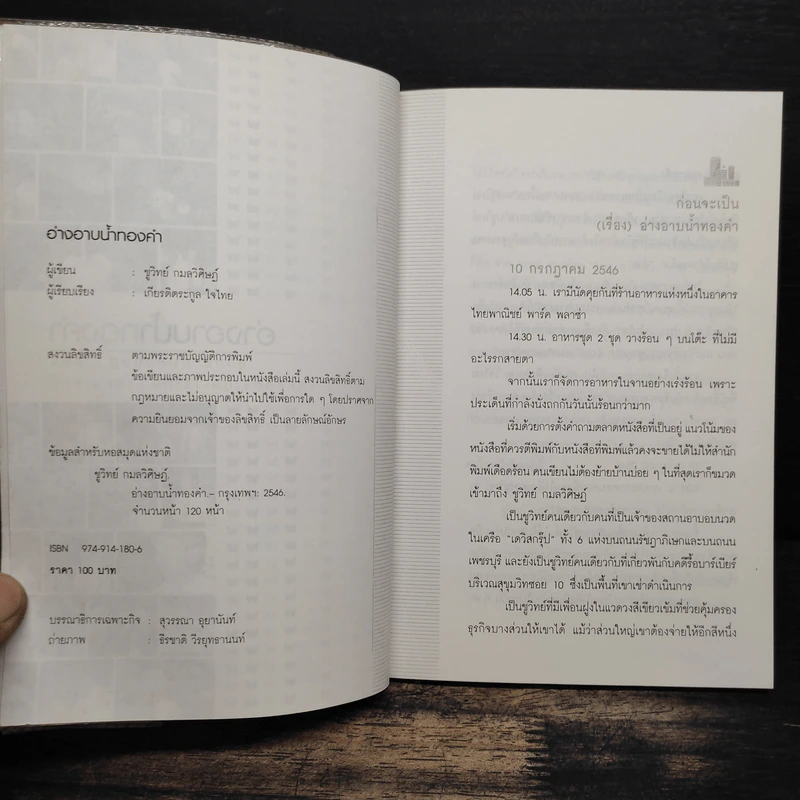 อ่างอาบน้ำทองคำ
ผู้เขียน : ชูวิทย์ กมลวิศิษฎ์
ผู้เรียบเรียง : เกียรติตระกูล ใจไทย
สงวนลิขสิทธิ์ ตามพระราชบัญญัติการพิมพ์
ข้อเขียนและภาพประกอบในหนังสือเล่มนี้ สงวนลิขสิทธิ์ตาม
กฎหมายและไม่อนุญาตให้นำไปใช้เพื่อการใด ๆ โดยปราศจาก
ความยินยอมจากเจ้าของลิขสิทธิ์ เป็นลายลักษณ์อักษร
ข้อมูลสำหรับหอสมุดแห่งชาติ
ชูวิทย์ กมลวิศิษฎ์.
อ่างอาบน้ำทองคำ.– กรุงเทพฯ: 2546.
จำนวนหน้า 120 หน้า
ISBN 974-914-180-6
ราคา 100 บาท
บรรณาธิการเฉพาะกิจ : สุวรรณา อุยานันท์
ถ่ายภาพ : ธิรชาติ วีรยุทธานนท์
ก่อนจะเป็น
(เรื่อง) อ่างอาบน้ำทองคำ
10 กรกฎาคม 2546
14.05 น. เรามีนัดคุยกันที่ร้านอาหารแห่งหนึ่งในอาคาร
ไทยพาณิชย์ พาร์ค พลาซ่า
14.30 น. อาหารชุด 2 ชุด วางร้อน ๆ บนโต๊ะ ที่ไม่มี
อะไรรกสายตา
จากนั้นเราก็จัดการอาหารในจานอย่างเร่งร้อน เพราะ
ประเด็นที่กำลังนั่งถกกันวันนั้นร้อนกว่ามาก
เริ่มด้วยการตั้งคำถามตลาดหนังสือที่เป็นอยู่ แนวโน้มของ
หนังสือที่ควรตีพิมพ์กับหนังสือที่พิมพ์แล้วคงจะขายได้ไม่ให้สำนัก
พิมพ์เดือดร้อน คนเขียนไม่ต้องย้ายบ้านบ่อย ๆ ในที่สุดเราก็ขมวด
เข้ามาถึง ชูวิทย์ กมลวิศิษฎ์
เป็นชูวิทย์คนเดียวกับคนที่เป็นเจ้าของสถานอาบอบนวด
ในเครือ "เดวิสกรุ๊ป" ทั้ง 6 แห่งบนถนนรัชฎาภิเษกและบนถนน
เพชรบุรี และยังเป็นชูวิทย์คนเดียวกับที่เกี่ยวพันกับคดีรื้อบาร์เบียร์
บริเวณสุขุมวิทซอย 10 ซึ่งเป็นพื้นที่เขาเช่าดำเนินการ
เป็นชูวิทย์ที่มีเพื่อนฝูงในแวดวงสีเขียวเข้มที่ช่วยคุ้มครอง
ธุรกิจบางส่วนให้เขาได้ แม้ว่าส่วนใหญ่เขาต้องจ่ายให้อีกสีหนึ่ง